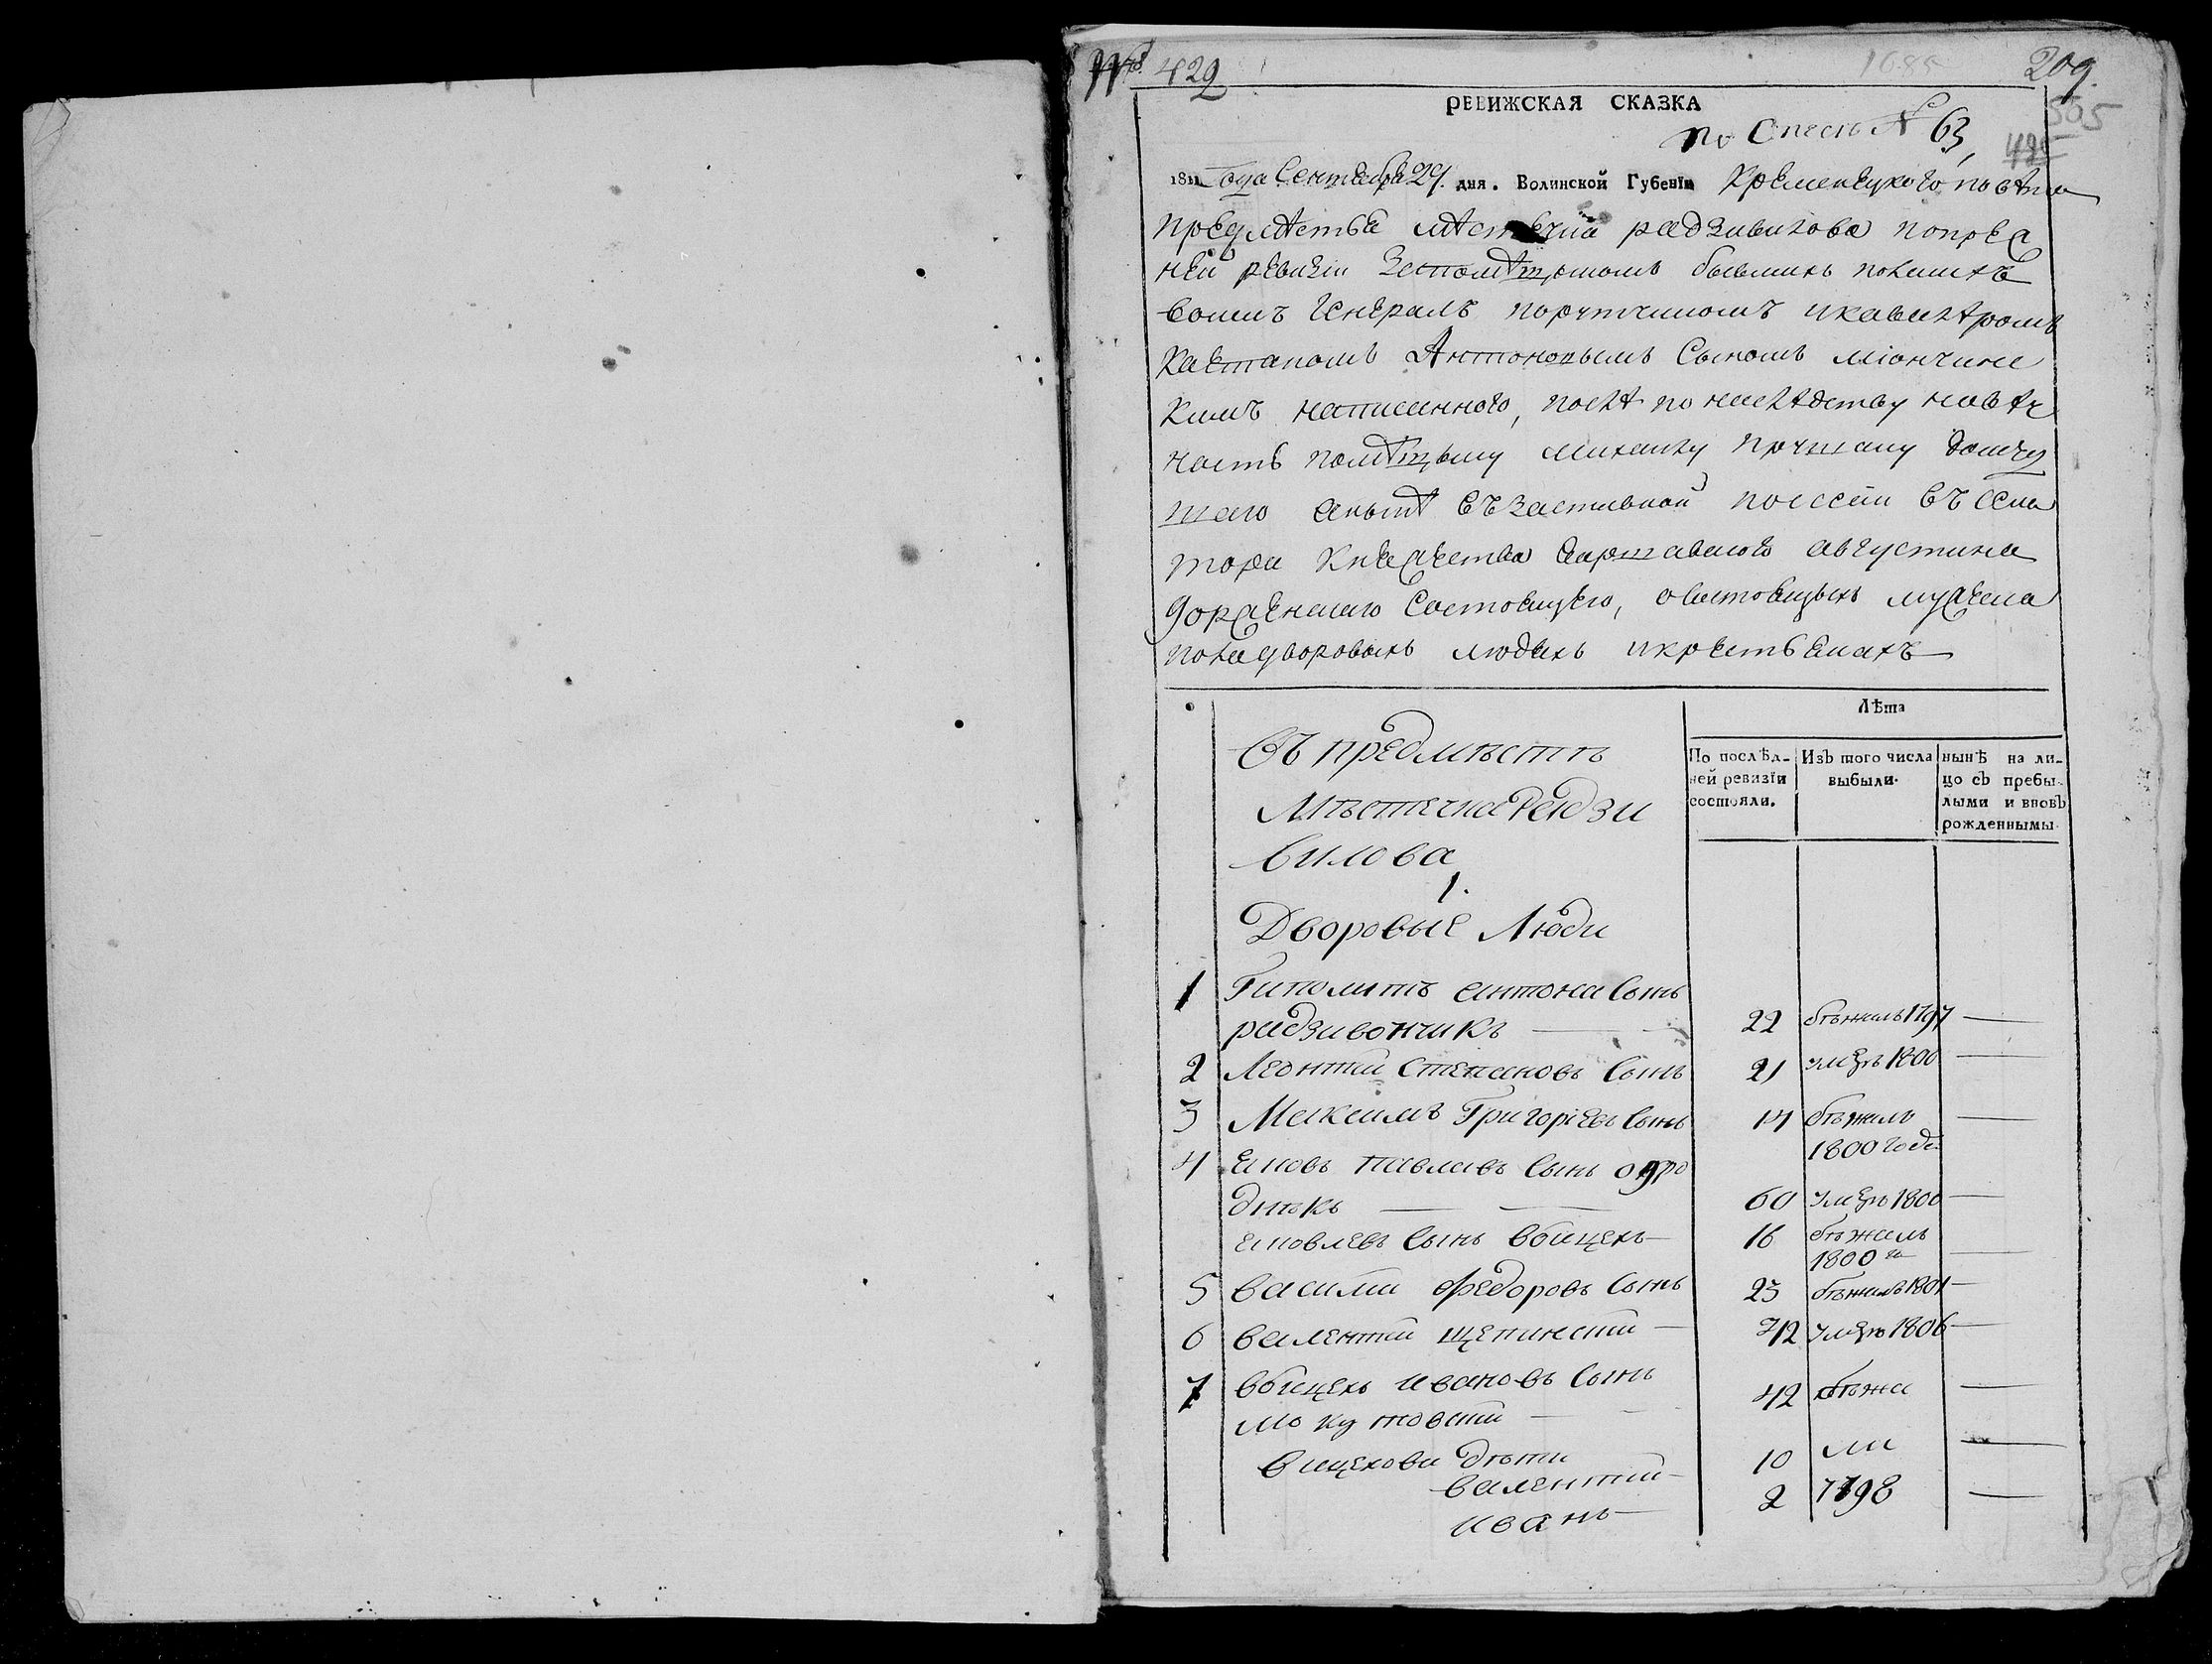 429
1685
209
505
РЕВИЖСКАЯ СКАЗКА
по Описи № 63
485
1811 Года Сентебра 29. дня. Волинской Губенїи Кременецкого повѣта
предмѣстья мѣстечка радзивилова попрежд
ней ревизіи бывшихъ польских
воискъ Генералъ поручикомъ икавалѣромъ
Каетаномъ Антоновымъ Сыномъ міончинс
кимъ написанного, послѣ по наслѣдству навѣч
ность помѣщыку михаилу
аныне въ заставной поссесіи въ Сена
тора Княжества варшавского августина
Состоящего, осостоящыхъ мужеска
пола дворовыхъ людяхъ икрестьянахъ
Въ предмѣстѣ
Мѣстечка Радзи
вилова
1.
Дворовые Люди
Лѣта
По послѣд-
ней ревизїи
состояли.
Изъ того числа
выбыли.
нынѣ на ли-
цо съ пребы-
лыми и вновь
рожденнымы.
1 Гиполитъ антона Сынъ
радзивончикъ 22 бѣжалъ 1797
2 Леонтій Степановъ Сынъ 21 умеръ 1800
3 Максимъ Григоріевъ Сынъ 14 бѣжалъ
1800 года
4 Яковъ павловъ Сынъ огро
дникъ 60 умеръ 1800
яковлевъ Сынъ воицехъ 16 бѣжалъ
1800 го
5 василій Федоровъ Сынъ 23 бѣжалъ 1801
6 валентій щепинскій 42 умеръ 1806
7 воицехъ ивановъ Сынъ
мокутовскій 42 бѣжа
воицехови дѣти
валентій 10 ли
иванъ 2 1798